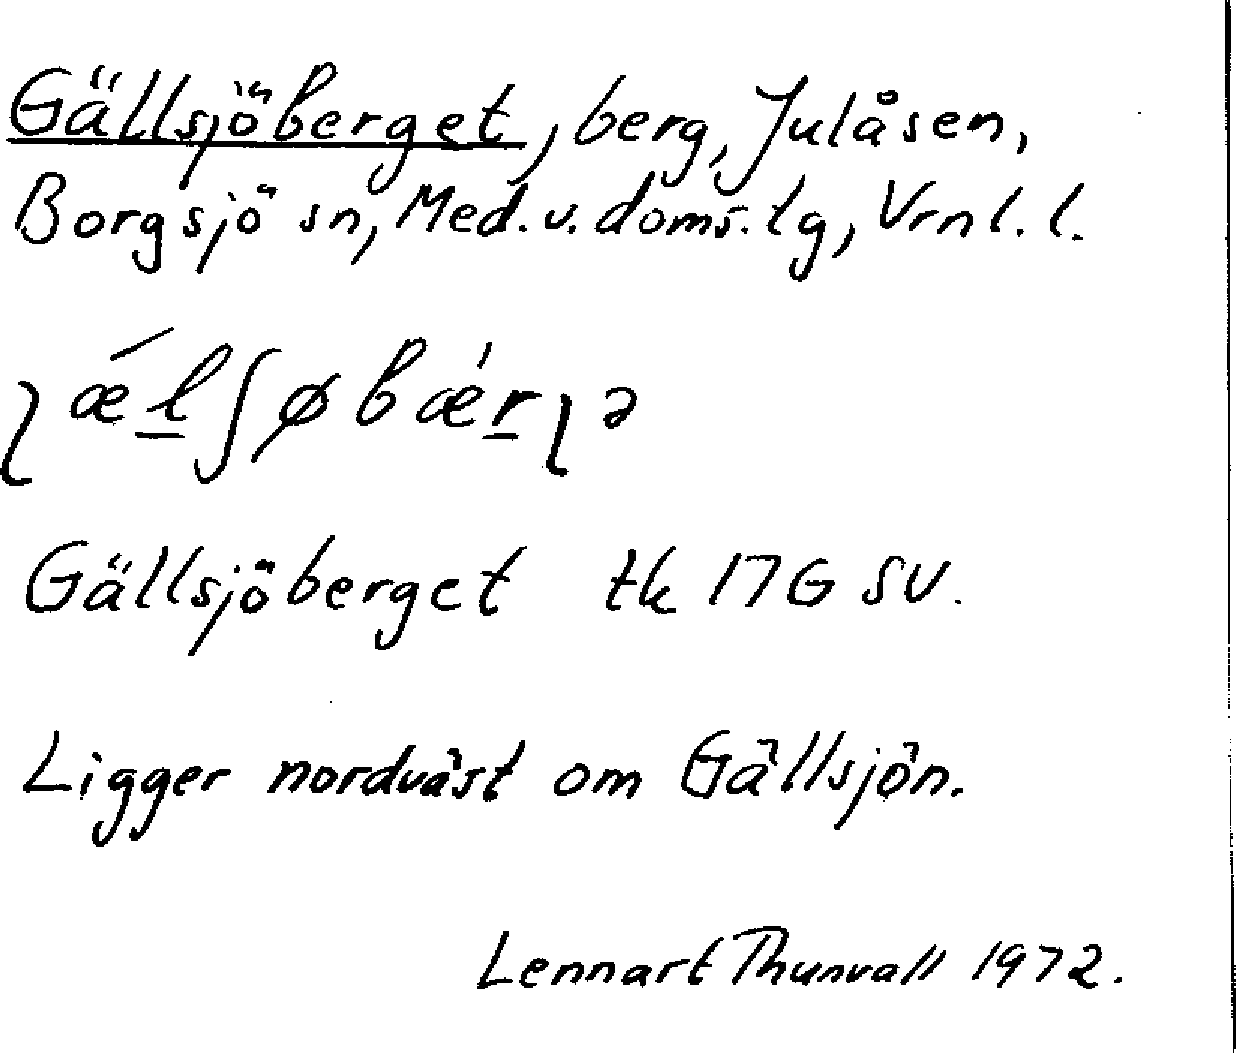 Gällsjöberget, berg, Julåsen,
Borgsjö sn, Med. v. doms. lg, Vrnl. l.
ʅǽl̲ʃøbǽr̲ʅə
Gällsjöberget tk 17G SV.
Ligger nordväst om Gällsjön.
Lennart Thunvall 1972.